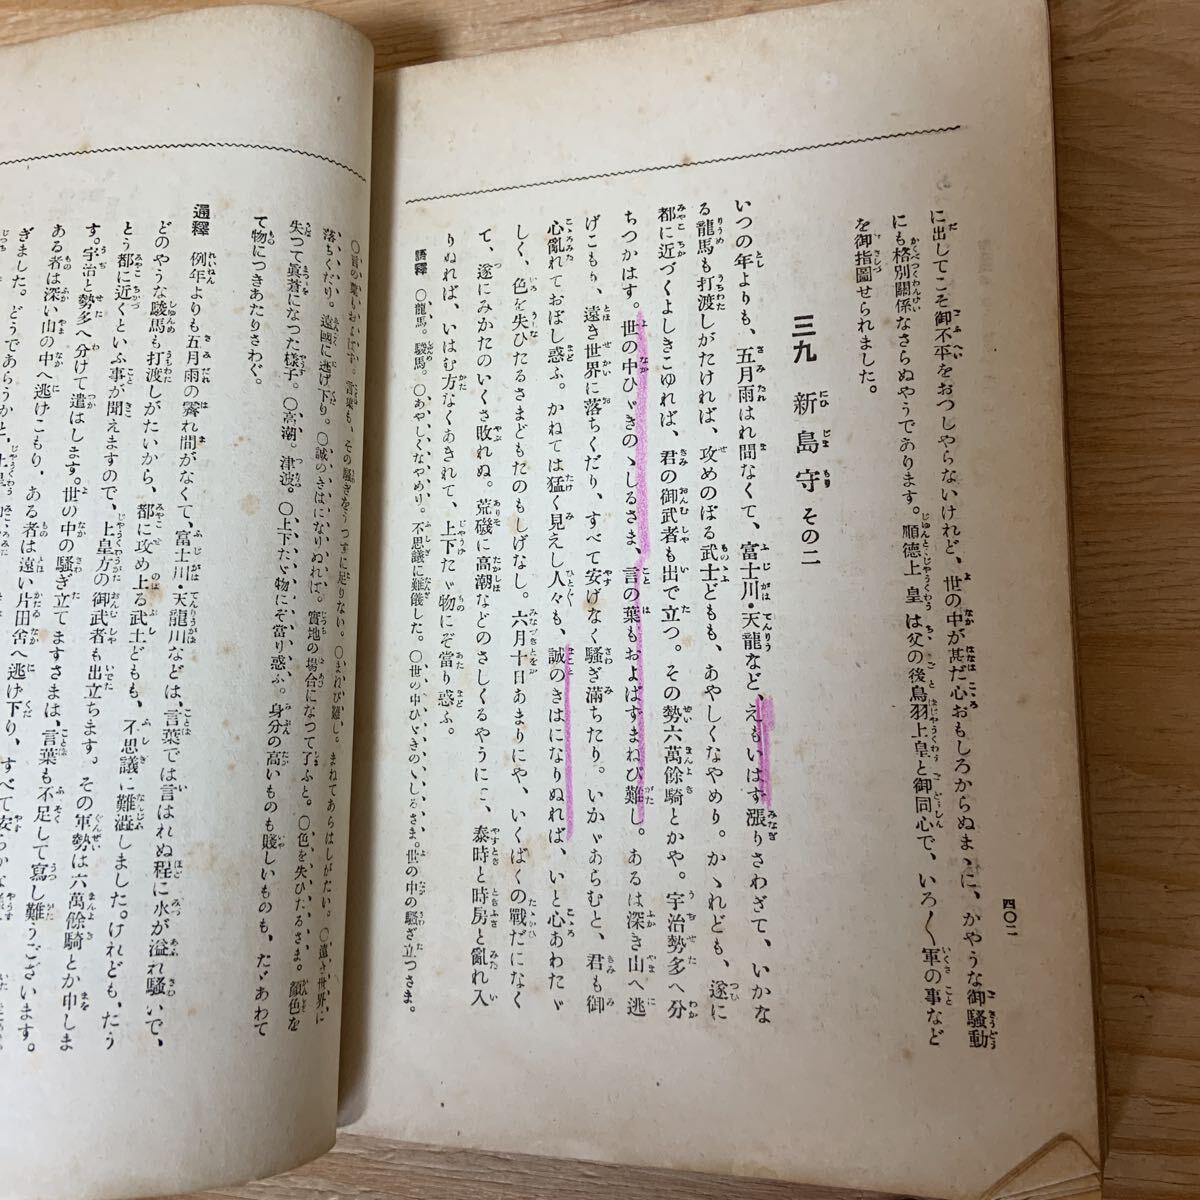 に出してこそ御不平をおつしやらないけれど、世の中が甚だ心おもしろからぬまゝに、かやうな御騷動
にも格別關係なさらぬやうであります。順德上皇は父の後鳥羽上皇と御同心で、いろ〱軍の事など
を御指圖せられました。
三九 新島守 その二
いつの年よりも、五月雨はれ間なくて、富士川・天龍など、えもいはず漲りさわぎて、いかな
る龍馬も打渡しがたければ、攻めのぼる武士どもも、あやしくなやめり。かゝれども、遂に
都に近づくよしきこゆれば、君の御武者も出で立つ。その勢六萬餘騎とかや。宇治勢多へ分
ちつかはす。世の中ひゞきのゝしるさま、言の葉もおよばずまねび難し。あるは深き山へ逃
げこもり、遠き世界に落ちくだり、すべて安げなく騷ぎ滿ちたり。いかゞあらむと、君も御
心亂れておぼし惑ふ。かねては猛く見えし人々も、誠のきはになりぬれば、いと心あわたゞ
しく、色を失ひたるさまどもたのもしげなし。六月十日あまりにや、いくばくの戰だになく
て、遂にみかたのいくさ敗れぬ。荒磯に高潮などのさしくるやうにて、泰時と時房と亂れ入
りぬれば、いはむ方なくあきれて、上下たゞ物にぞ當り惑ふ。
語釋 〇龍馬。駿馬。〇あやしくなやめり。不思議に難儀した。〇世の中ひゞきのゝしるさま。世の中の騷ぎ立つさま。
〇言の葉もおよばず。言葉も、その騷ぎをうつすに足りない。〇まねび難し。まねてあらはしがたい。〇遠き世界に
落ちくだり。遠國に逃げ下り。〇誠のきはになりぬれば。實地の場合になつて了ふと。〇色を失ひたるさま。顏色を
失つて眞蒼になつた樣子。〇高潮。津波。〇上下たゞ物にぞ當り惑ふ。身分の高いものも賤しいものも、たゞあわて
て物につきあたりさわぐ。
通釋 例年よりも五月雨の霽れ間がなくて、富士川・天龍川などは、言葉では言はれぬ程に水が溢れ騷いで、
どのやうな駿馬も打渡しがたいから、都に攻め上る武士どもも、不思議に難澁しました。けれども、たう
とう都に近くといふ事が聞えますので、上皇方の御武者も出立ちます。その軍勢は六萬餘騎とか申しま
す。宇治と勢多へ分けて遣はします。世の中の騷ぎ立てますさまは、言葉も不足して寫し難うございます。
ある者は深い山の中へ逃げこもり、ある者は遠い片田舍へ逃げ下り、すべて安らかな
ぎました。どうであらうかと、上皇
四〇二